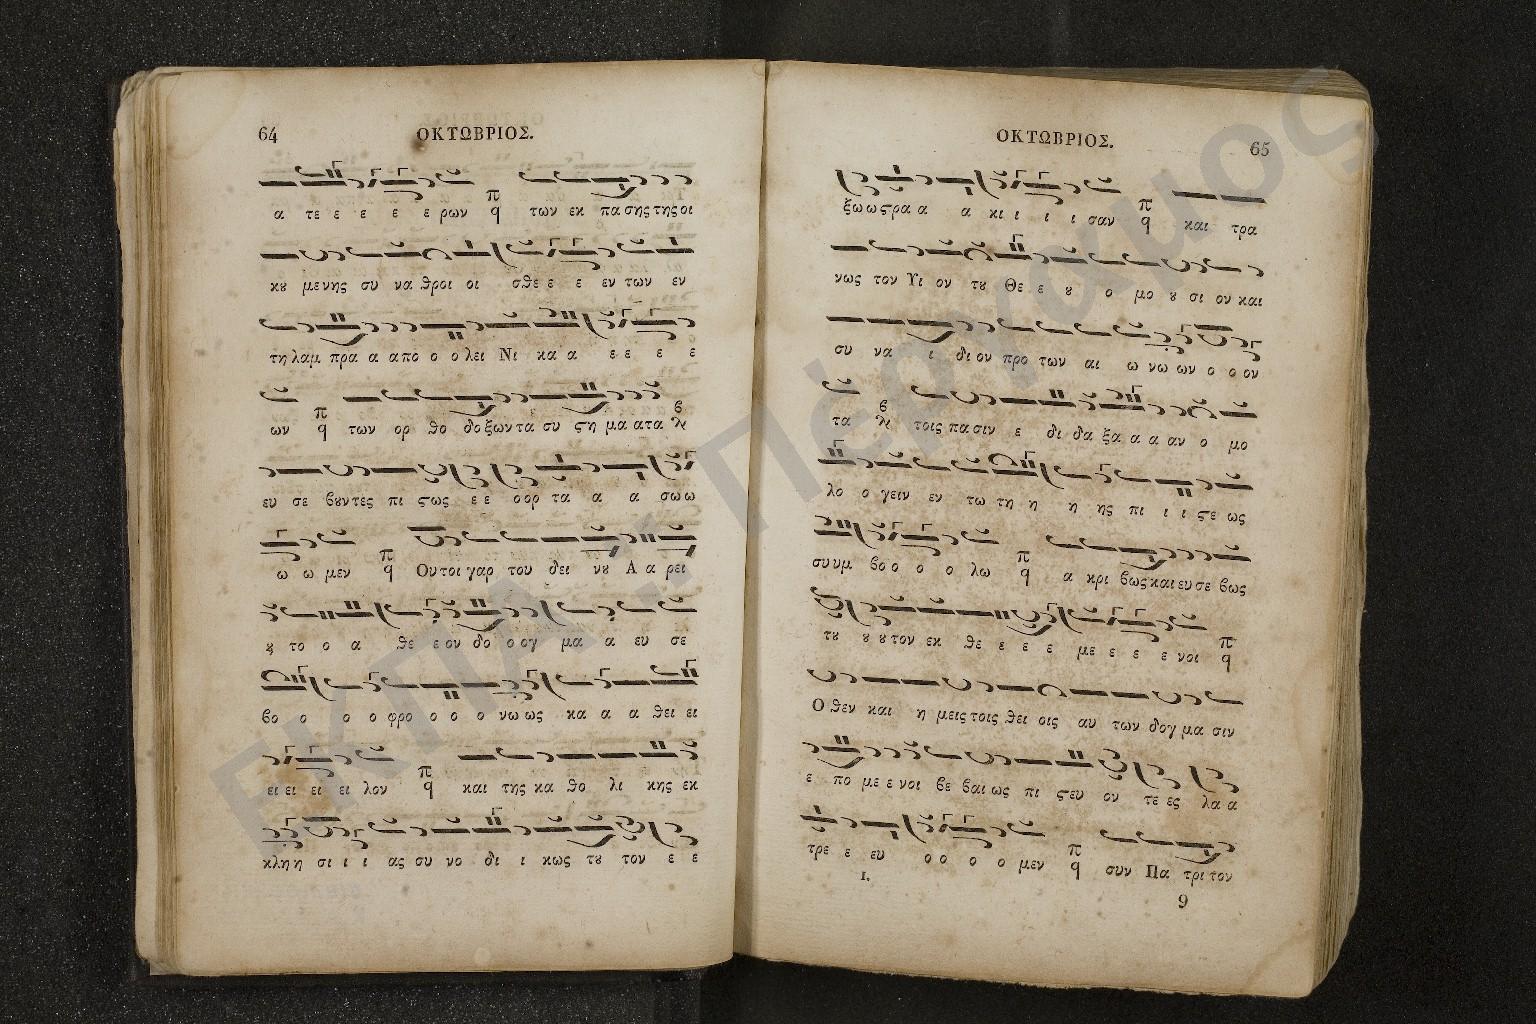 64
ΟΚΤΩΒΡΙΟΣ.
α τε ε ε ε ε ρων των εκ πα σης της οι
κȣ μενης συ να θροι οι σθε ε ε εν των εν
τη λαμ πρα α α πο ο ο λει Νι κα α ε ε ε ε
ων των ορ θο δο ξων τα συ ϛη μα α τα
ευ σε βȣντες πι ϛως ε ε ο ορ τα α α σω ω
ω ω μεν Ου τοι γαρ του δει νȣ Α α ρει
ȣ το ο α θε ε ον δο ο ογ μα α ευ σε
βο ο ο ο φρο ο ο ο νω ως κα α α θει ει
ει ει ει ει λον και της κα θο λι κης εκ
κλη η σι ι ι ας συ νο δι ι κως τȣ τον ε ε
ΟΚΤΩΒΡΙΟΣ.
65
ξω ω ϛρα α α κι ι ι ι σαν και τρα
νως τον Υι ον τȣ Θε ε ȣ ο μο ȣ σι ον και
συ να ι δι ον προ των αι ω νω ων ο ο ον
τα τοις πα σιν ε δι δα ξα α α αν ο μο
λο ο γειν εν τω τη η η ης πι ι ι ϛε ως
συ υμ βο ο ο ο λω α κρι βως και ευ σε βως
τȣ ȣ ȣ τον εκ θε ε ε ε με ε ε ε νοι
Ο θεν και η μεις τοις θει οις αυ των δογ μα σιν
ε πο με ε νοι βε βαι ως πι ϛευ ον τε ες λα α
τρε ε ευ ο ο ο ο μεν συν Πα τρι τον
I.
9
ΕΚΠΑ,, Πέργαμος